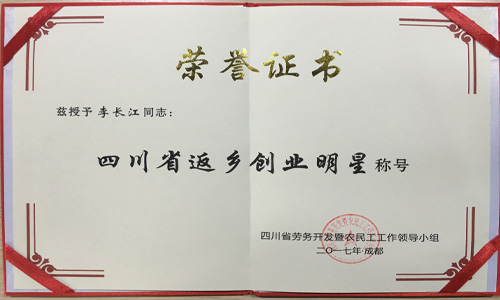 荣誉证书
兹授予李长江同志：
四川省返乡创业明星称号
四川省劳务开发暨农民工工作领导小组
二〇一七年·成都